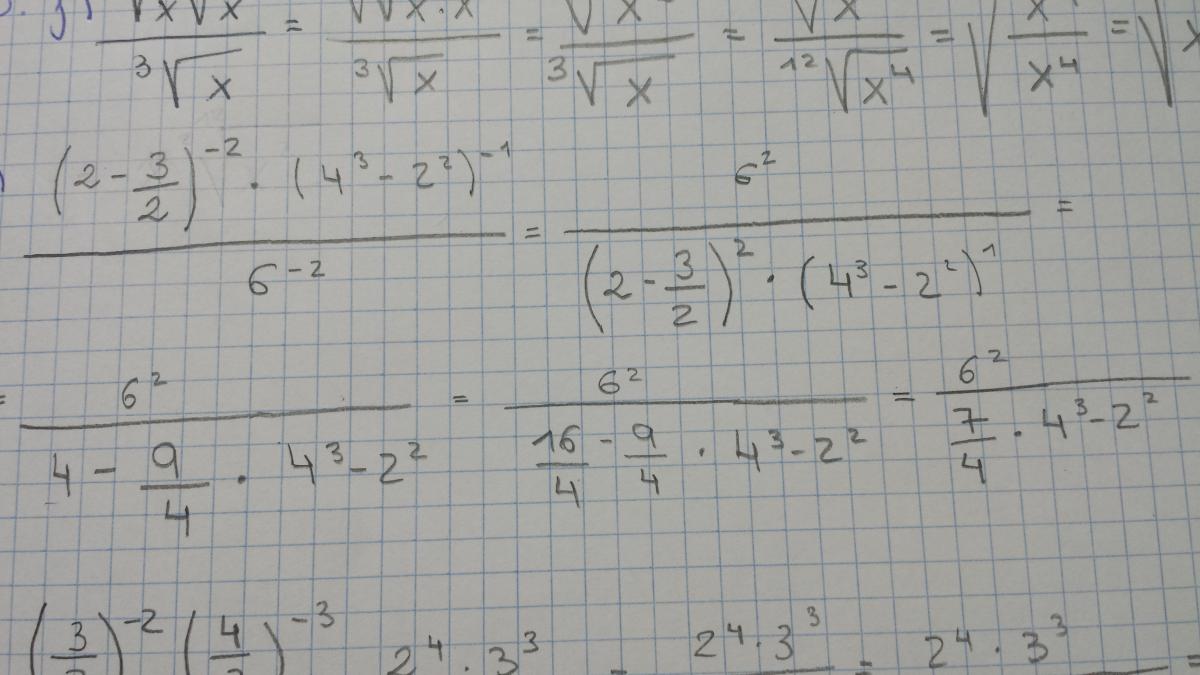 √x√x / ³√x = √√x·x / ³√x = √x / ³√x = √x / ¹²√x⁴ = √x / x⁴ = √x
(2 - 3/2)⁻² · (4³ - 2²)⁻¹ / 6⁻² = 6² / (2 - 3/2)² · (4³ - 2²)¹ =
= 6² / 4 - 9/4 · 4³ - 2² = 6² / 16/4 - 9/4 · 4³ - 2² = 6² / 7/4 · 4³ - 2²
(3/)⁻² (4/)⁻³ 2⁴ · 3³ = 2⁴ · 3³ = 2⁴ · 3³ =